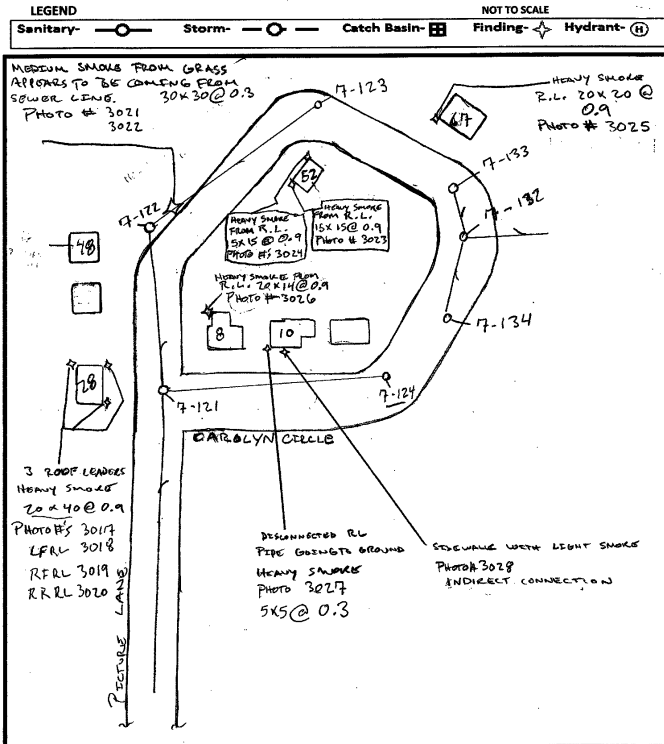 LEGEND
NOT TO SCALE
Sanitary- Storm- Catch Basin- Finding- Hydrant- H
MEDIUM SMOKE FROM GRASS
APPEARS TO BE COMING FROM
SEWER LINE. 30x30@0.3
PHOTO # 3021
3022
7-123
HEAVY SMOKE
R.L. 20x20 @
0.9
PHOTO # 3025
67
7-133
7-132
7-122
52
HEAVY SMOKE
FROM R.L.
5x15 @ 0.9
PHOTO #'s 3024
HEAVY SMOKE
FROM R.L.
15x15@ 0.9
PHOTO # 3023
48
HEAVY SMOKE FROM
R.L. 20x14@0.9
PHOTO # 3026
8
10
7-134
28
7-121
7-124
CAROLYN CIRCLE
3 ROOF LEADERS
HEAVY SMOKE
20 x 40 @ 0.9
PHOTO #'s 3017
LFRL 3018
RFRL 3019
RRRL 3020
DISCONNECTED RL
PIPE GOING TO GROUND
HEAVY SMOKE
PHOTO 3027
5x5 @ 0.3
SIDEWALK WITH LIGHT SMOKE
PHOTO# 3028
INDIRECT CONNECTION
PICTURE LANE